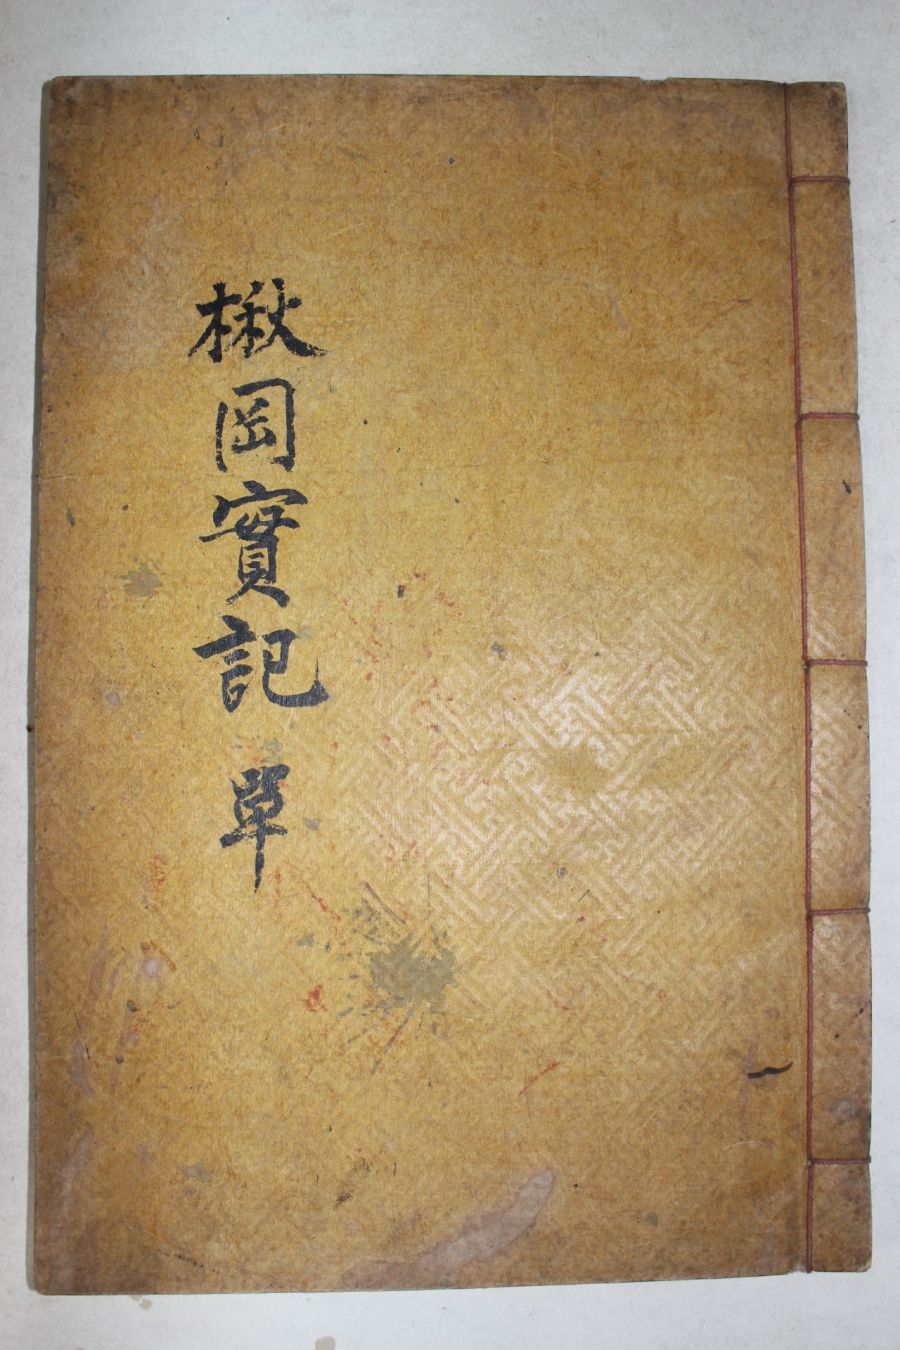 楸岡實記 單
一